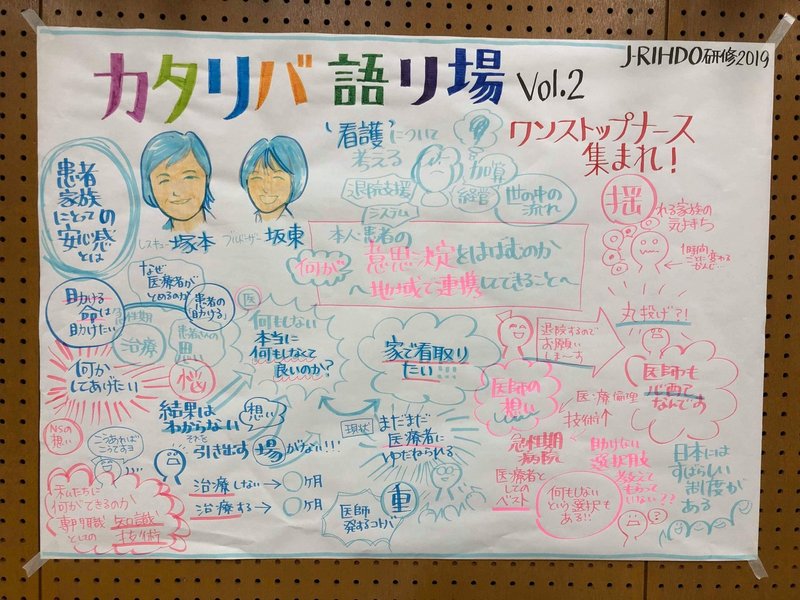 カタリバ 語り場 Vol.2
J-RIHDO研修2019
ワンストップナース
集まれ!
患者
家族
にとっての
安心感
とは
レスキュー 塚本
ブルドーザー 坂東
「看護」について
考える
加算
退院支援
経営
世の中の
流れ
システム
本人・患者の
何が 意思決定をはばむのか
〜地域で連携してできること〜
揺れる家族の
気もち
1時間
ごとに変わる
なぜ
医療者が
とめるのか
患者の
「助ける」
助ける
命は
助けたい
急性期
治療
患者さんの
思い
何が
してあげたい
悩
医
何もしない
本当に
何もしなくて
良いのか?
家で看取り
たい
丸投げて!
退院するので
お願い
しま〜す
医師の
想い
医療倫理
技術↑
医師も
心配
なんです
結果は
わからない
想い
それを
引き出す場がない!!!
現状
まだまだ
医療者に
ゆだねられる
NSの
想い
こうあれば
こうですヨ
私たちに
何ができるのか
専門職
としての
知識
技術
治療しない→〇ヶ月
治療する→〇ヶ月
医師
発するコトバ
重
急性期
病院
医療者と
しての
ベスト
助けない
選択肢
教えて
もらって
いない??
何もしない
という選択も
ある!!
日本には
すばらしい
制度が
ある